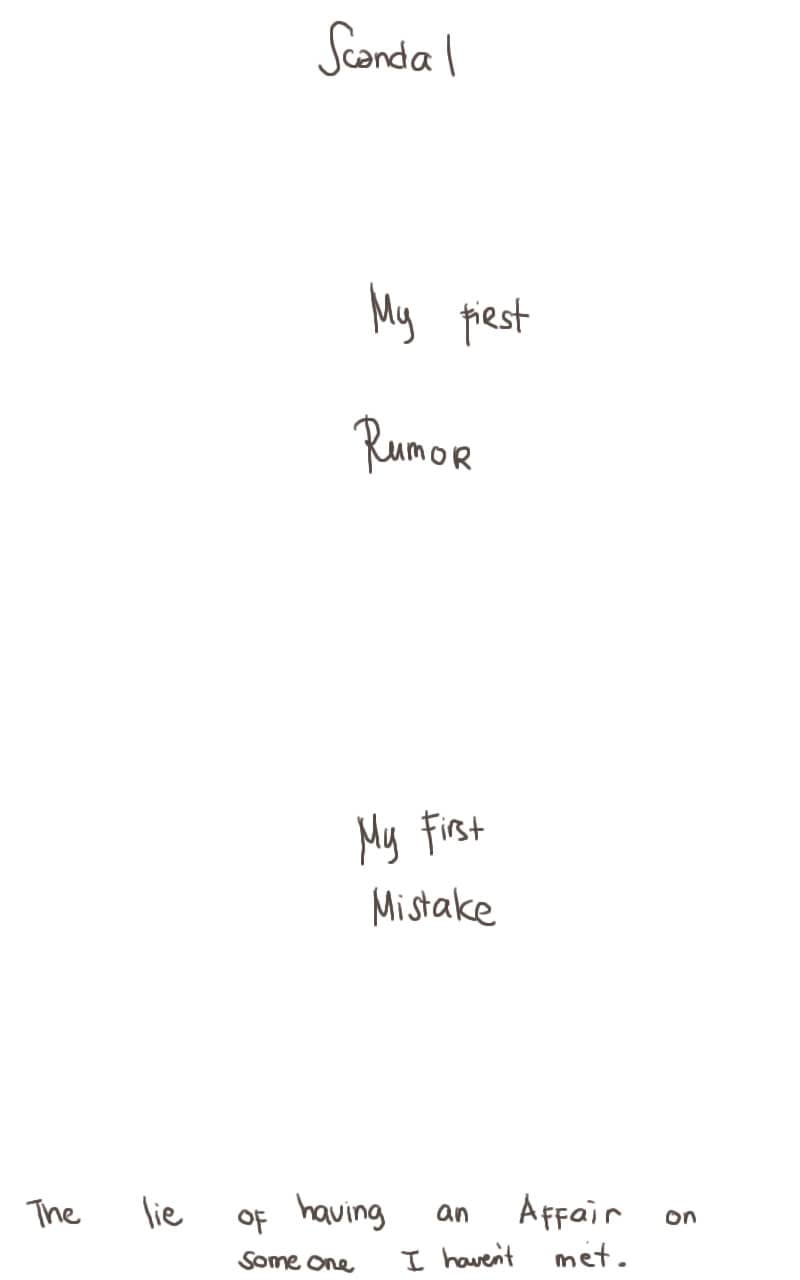 Scandal
My first
Rumor
My First
Mistake
The lie of having an Affair on
someone I haven't met.